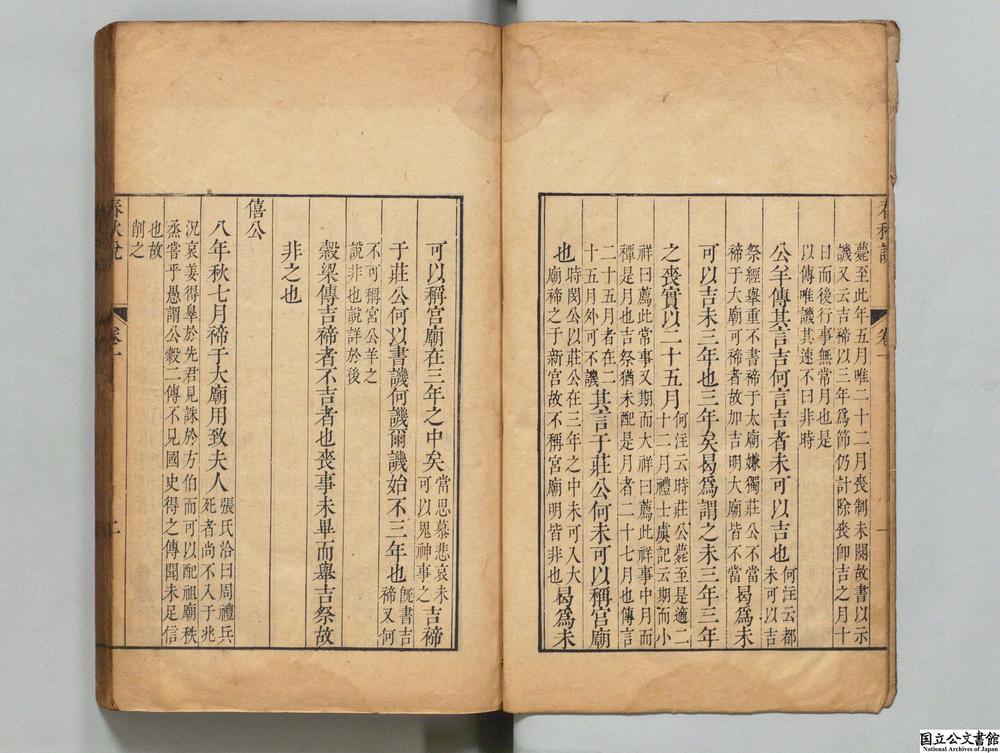 春秋說 卷一 一
薨至此年五月唯二十二月喪制未闋故書以示
譏又云吉禘以三年爲節仍計除喪卽吉之月十
日而後行事無常月也是
以傳唯譏其速不曰非時
公羊傳其言吉何言吉者未可以吉也何注云都未可以吉
祭經舉重不書禘于太廟嫌獨莊公不當禘于大廟可禘者故加吉明大廟皆不當曷爲未
可以吉未三年也三年矣曷爲謂之未三年三年
之喪實以二十五月何注云時莊公薨至是適二十二月禮士虞記云期而小
祥曰薦此常事又期而大祥曰薦此祥事中月而
禫是月也吉祭猶未配是月者二十七月也傳言
二十五月者在二十五月外可不譏其言于莊公何未可以稱宮廟
也時閔公以莊公在三年之中未可入大廟禘之于新宮故不稱宮廟明皆非也曷爲未
可以稱宮廟在三年之中矣當思慕悲哀未可以鬼神事之吉禘
于莊公何以書譏何譏爾譏始不三年也旣書吉禘又何
不可稱宮公羊之
說非也說詳於後
穀梁傳吉禘者不吉者也喪事未畢而舉吉祭故
非之也
僖公
八年秋七月禘于大廟用致夫人張氏洽曰周禮兵死者尚不入于兆
況哀姜得辠於先君見誅於方伯而可以配祖廟秩
烝嘗乎愚謂公穀二傳不見國史得之傳聞未足信
也故
削之
春秋說 卷一 二
国立公文書館
National Archives of Japan